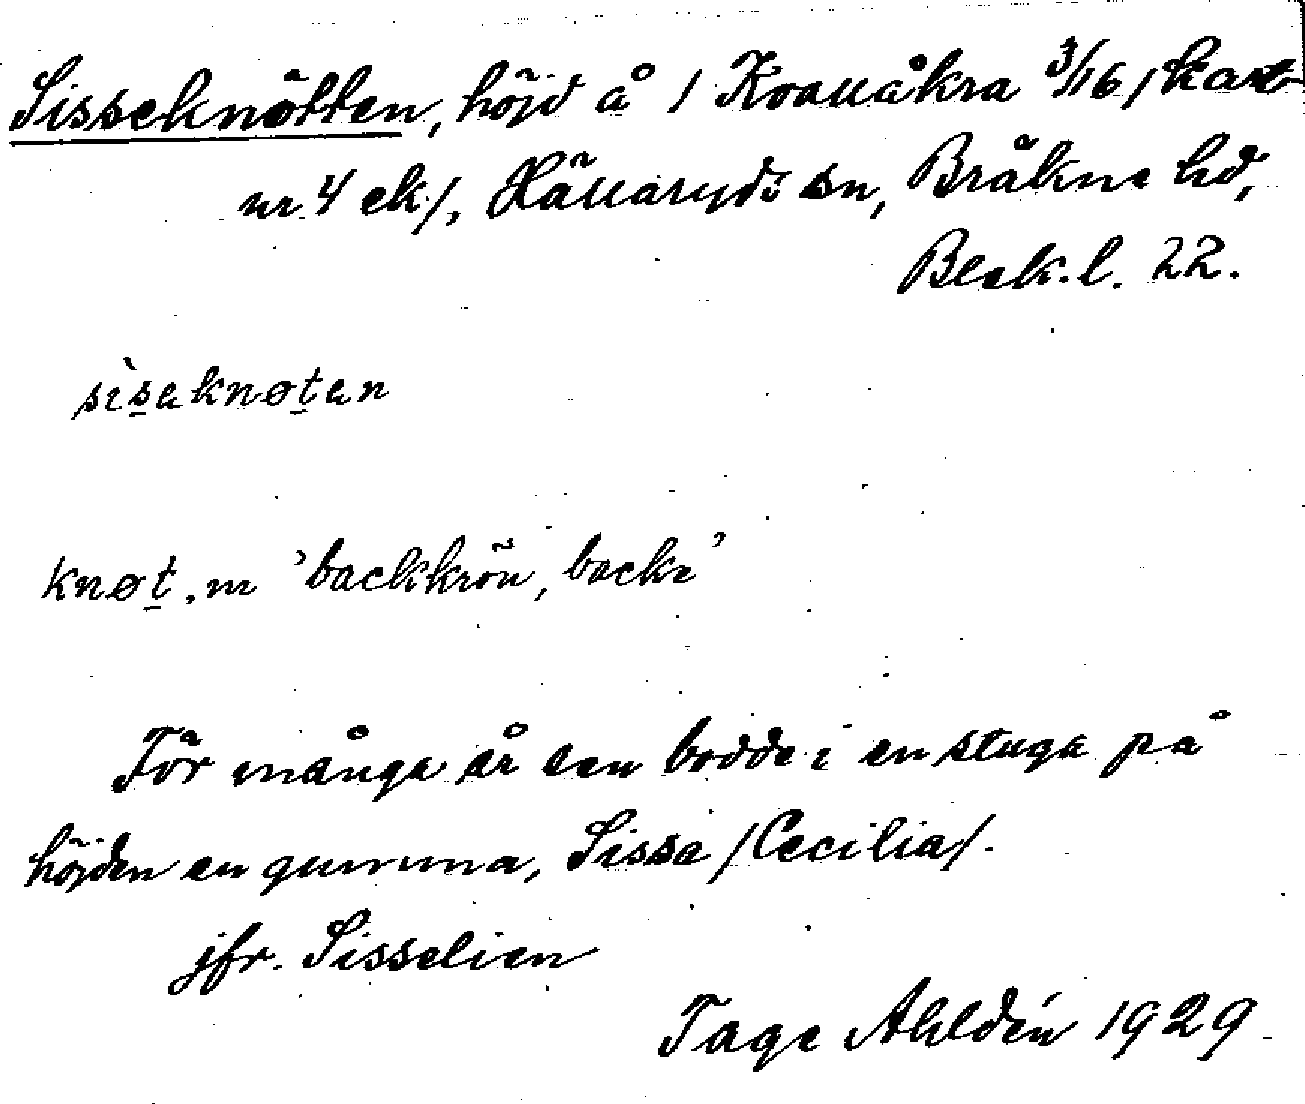 Sisseknötten, höjd å / Kvallåkra 3/16 / kart
nr 4 ek/, Hällaryds sn, Bräkne hd,
Blek. l. 22.
sìs̲aknøt̲an
knøt̲. m 'backkrön, backe'
För många år sen bodde i en stuga på
höjden en gumma, Sissa /Cecilia/.
jfr. Sisselien
Tage Ahldén 1929